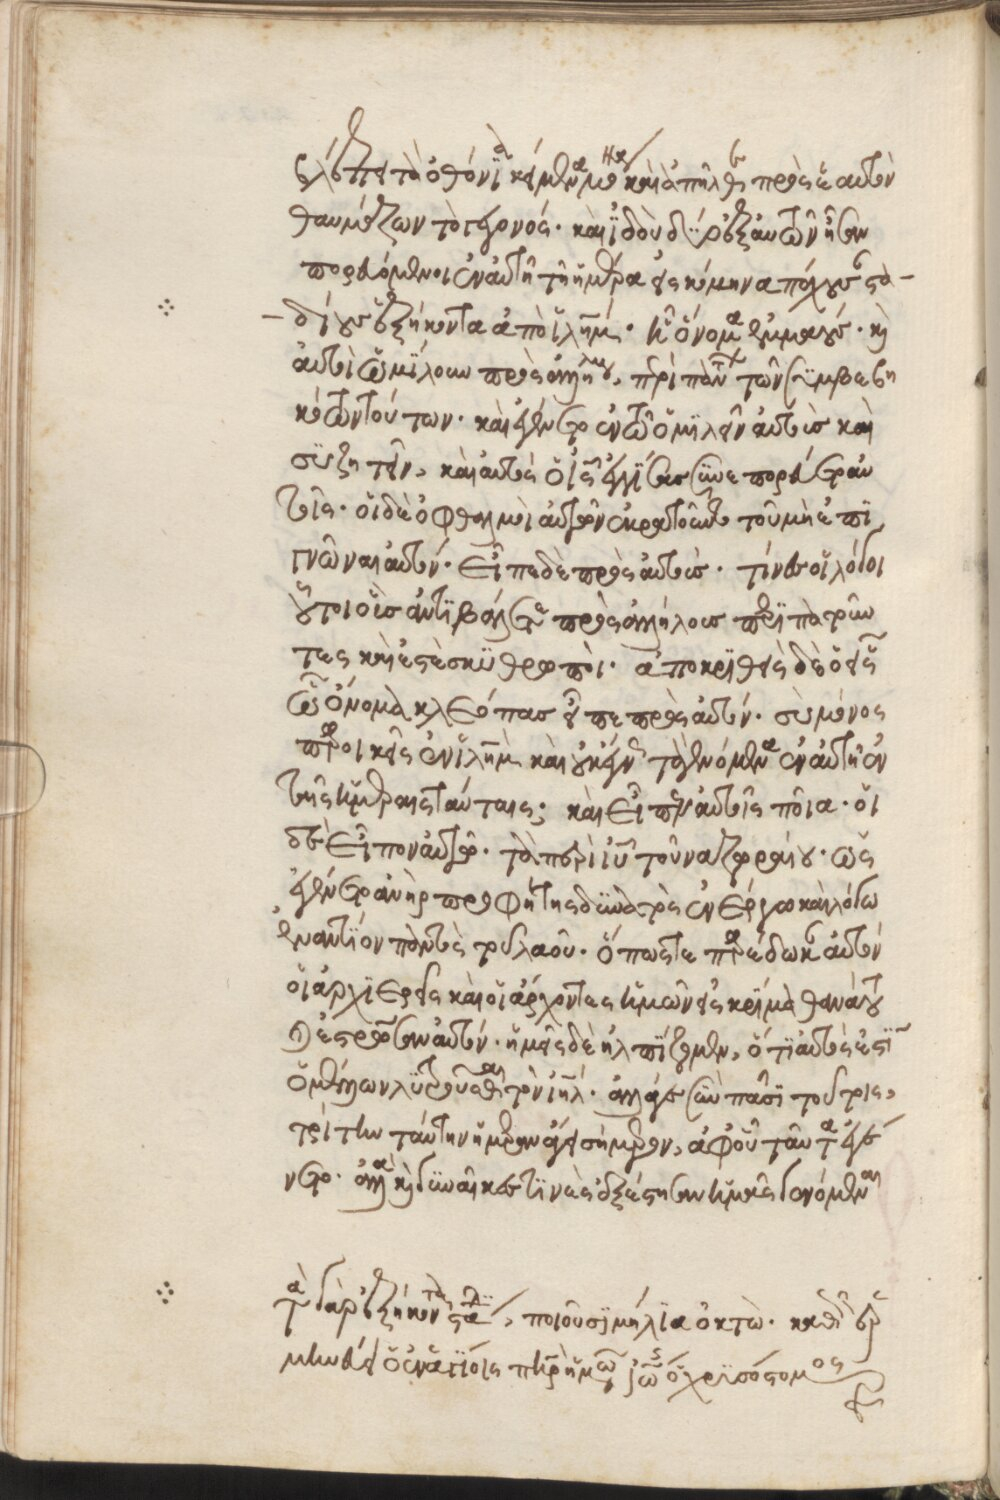 βλέπει τὰ ὀθόνια κείμενα μόνα καὶ ἀπῆλθε πρὸς ἑαυτὸν
θαυμάζων τὸ γεγονός. καὶ ἰδοὺ δύο ἐξ αὐτῶν ἦσαν
πορευόμενοι ἐν αὐτῇ τῇ ἡμέρα εἰς κώμην ἀπέχουσα στα–
–δίους ἑξήκοντα ἀπὸ ἱλημ. ᾗ ὄνομα ἐμμαούς. κὴ
αὐτοὶ ὡμίλουν πρὸς ἀλλήλους, περὶ πάντων τῶν συμβεβη
κότων τούτων. καὶ ἐγένετο ἐν τῶ ὁμιλεῖν αὐτοὺς καὶ
συζητεῖν, καὶ αὐτὸς ὁ ἰς ἐγγίσας συνεπορεύετο αὐ
τοῖς. οἱ δὲ ὀφθαλμοὶ αὐτῶν ἐκρατοῦντο τοῦ μὴ ἐπι
γνῶναι αὐτόν. εἶπε δὲ πρὸς αὐτούς. τίνες οἱ λόγοι
οὗτοι οὓς ἀντιβάλλετε πρὸς ἀλλήλους περιπατοῦν
τες καὶ ἐστὲ σκυθρωποί. ἀποκριθεὶς δὲ ὁ εἷς
ᾧ ὄνομα κλεόπας εἶπε πρὸς αὐτόν. σὺ μόνος
παροικεῖς ἐν ἱλημ καὶ οὐκ ἔγνως τὰ γενόμενα ἐν αὐτῇ ἐν
ταῖς ἡμέραις ταύταις; καὶ εἶπεν αὐτοῖς ποῖα. οἱ
δὲ εἶπον αὐτῶ. τὰ περὶ ιυ τοῦ ναζωραίου. ὡς
ἐγένετο ἀνὴρ προφήτης δυνατὸς ἐν ἔργω καὶ λόγω
ἐναντίον παντὸς τοῦ λαοῦ. ὅπως τε παρέδωκαν αὐτὸν
οἱ ἀρχιερεῖς καὶ οἱ ἄρχοντες ἡμῶν εἰς κρίμα θανάτου
καὶ ἐσταύρωσαν αὐτόν. ἡμεῖς δὲ ἠλπίζομεν, ὅτι αὐτός ἐστι
ὁ μέλλων λυτροῦσθαι τὸν ιηλ. ἀλλάγε σὺν πᾶσι τούτοις,
τρίτην ταύτην ἡμέραν ἄγει σήμερον, ἀφοῦ ταῦτα ἐγέ
νετο. ἀλλὰ κὴ γυναῖκές τινες ἐξέστησαν ἡμᾶς γενόμεναι
τὰ γὰρ ἑξήκοντα στάδια, ποιοῦσι μήλια ὀκτώ.
ὁ ἐν ἁγίοις πηρ ἡμῶν ἰω ὁ χρισόστομος